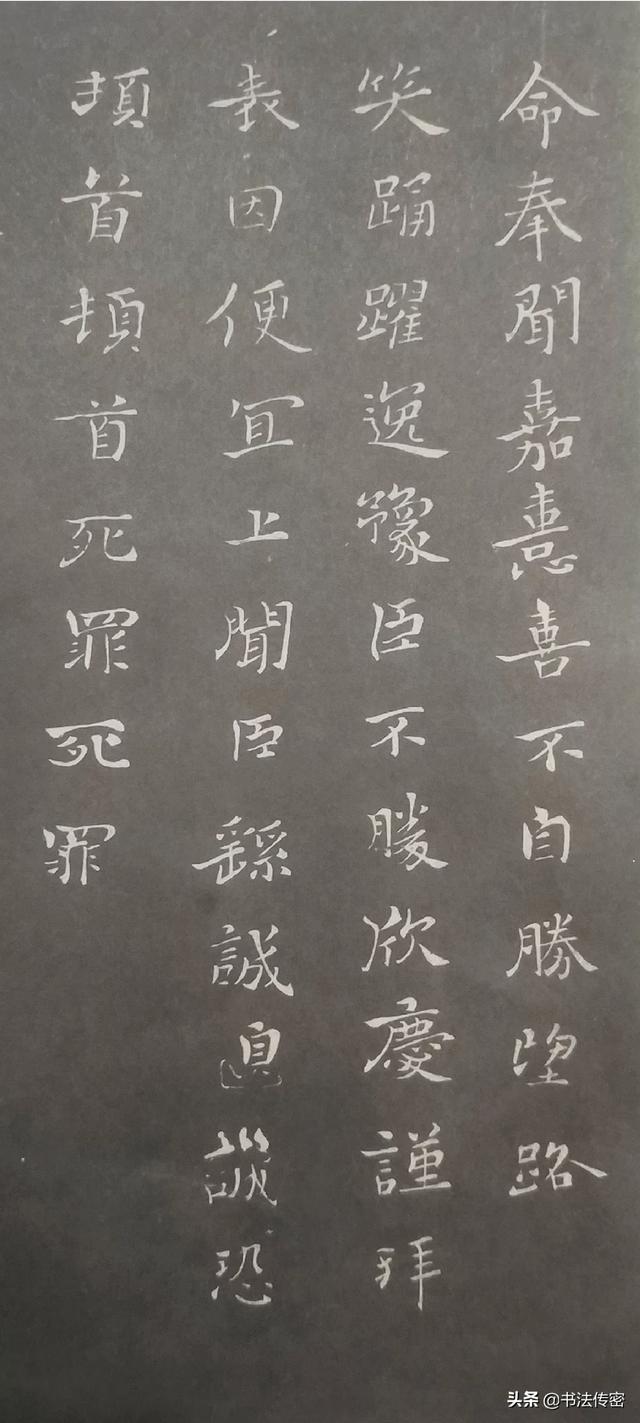 命奉聞嘉憙喜不自勝望路
笑踊躍逸豫臣不勝欣慶謹拜
表因便宜上聞臣繇誠誠恐
頓首頓首死罪死罪
头条 @书法传密